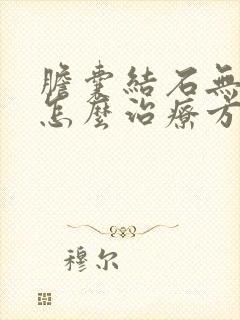 膽囊結石無
怎麼治療方
穆尔